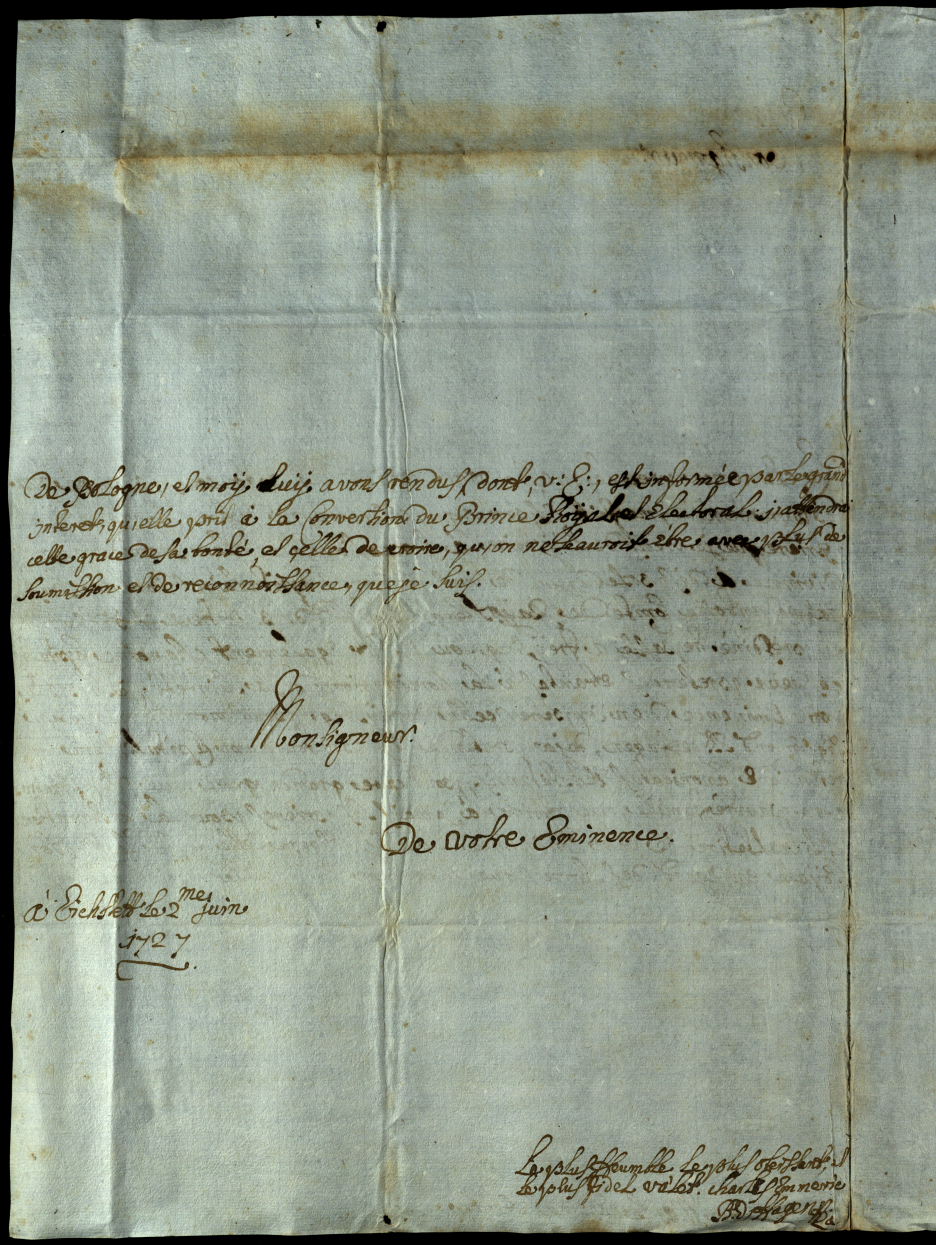 De Bologne, et moy Luy avons rendus, dont, V: E:, est informée par le grand
interet, qu'elle prit à la Convertion du Prince Royal et Electoral. j'attendrai
cette grace de sa bonté, et çelle de croire, qu'on ne sçauroit être avec plus de
soumission et de reconnoissance, que je suis.
Monsigneur.
De Votre Eminence.
à Eichstett le 2me juin
1727
Le plus humble le plus obeissant, et
le plus fidel valet. charles Emnerie